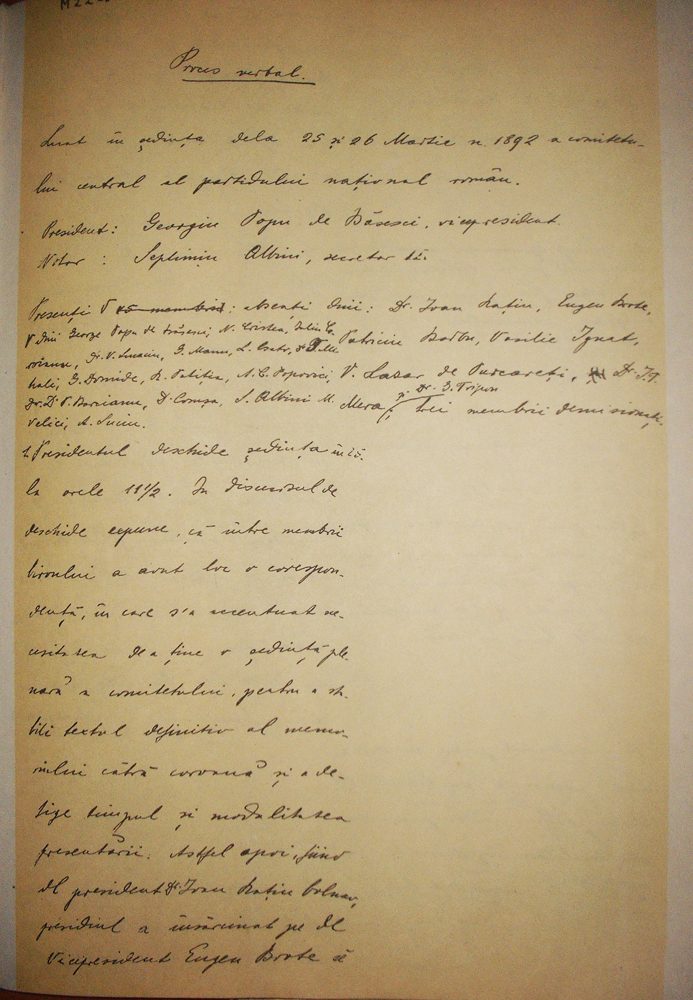 M22
Proces verbal.
Luat în ședința dela 25 și 26 Martie n. 1892 a comitetu-
lui central al partidului național român.
President: Georgiu Popu de Băsesci, vicepresident.
Notar: Septimiu Albini, secretar
Presenți 15 membrii: absenți dnii: Dr. Ioan Rațiu, Eugen Brote,
dnii George Popu de Băsesci, N. Cristea, Iuliu Co
roianu, Dr. V. Lucaciu, G. Manu, Patriciu Barbu, Vasilie Ignat,
G. Domide, R. Patiția, A. C. Popovici, V. Lazar de Purcareți, Dr.
Dr. D. P. Barcianu, D. Comșa, S. Albini M. Mera, și Dr. G. Tripon trei membrii demisionați.
Velici, A. Suciu.
1. Presidentul deschide ședința
la orele 11 1/2. In discursul de
deschide expune, că între membrii
biroului a avut loc o corespon-
dență, în care s'a accentuat ne-
cesitatea de a ține o ședință ple-
nară a comitetului, pentru a sta-
bili textul definitiv al memo-
riului cătră coroană și a de-
fige timpul și modalitatea
presentării. Astfel apoi, fiind
dl president Dr. Ioan Rațiu bolnav,
presidiul a însărcinat pe dl
vicepresident Eugen Brote să